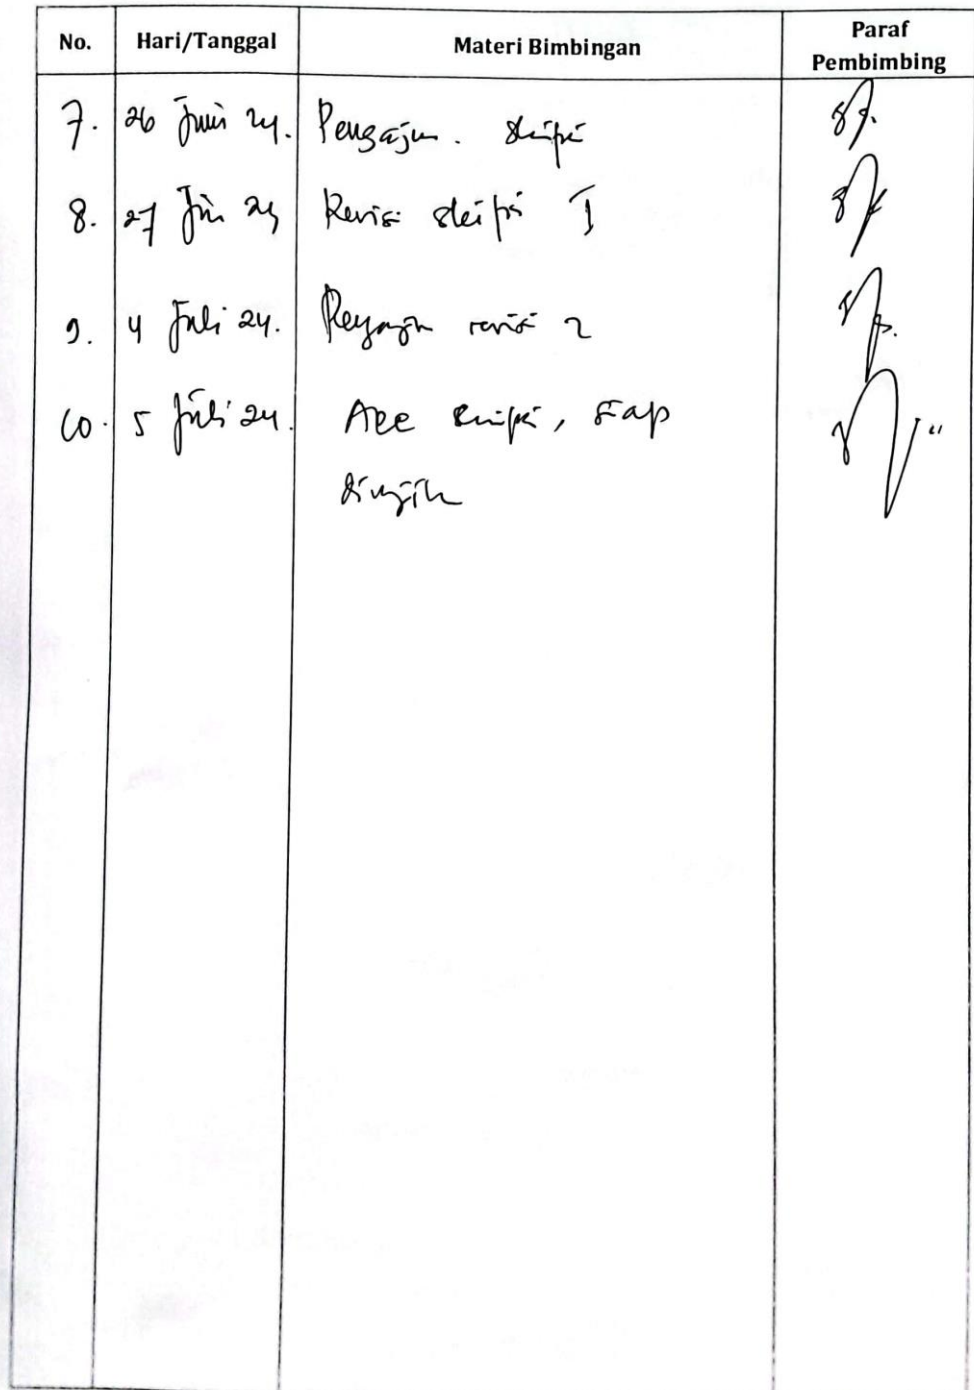 No. Hari/Tanggal Materi Bimbingan Paraf Pembimbing
7. 26 Juni 24. Pengajuan skripsi
8. 27 Juni 24 Revisi skripsi I
9. 4 Juli 24. Pengajuan revisi 2
10. 5 Juli 24. Acc skripsi, siap
diujikan